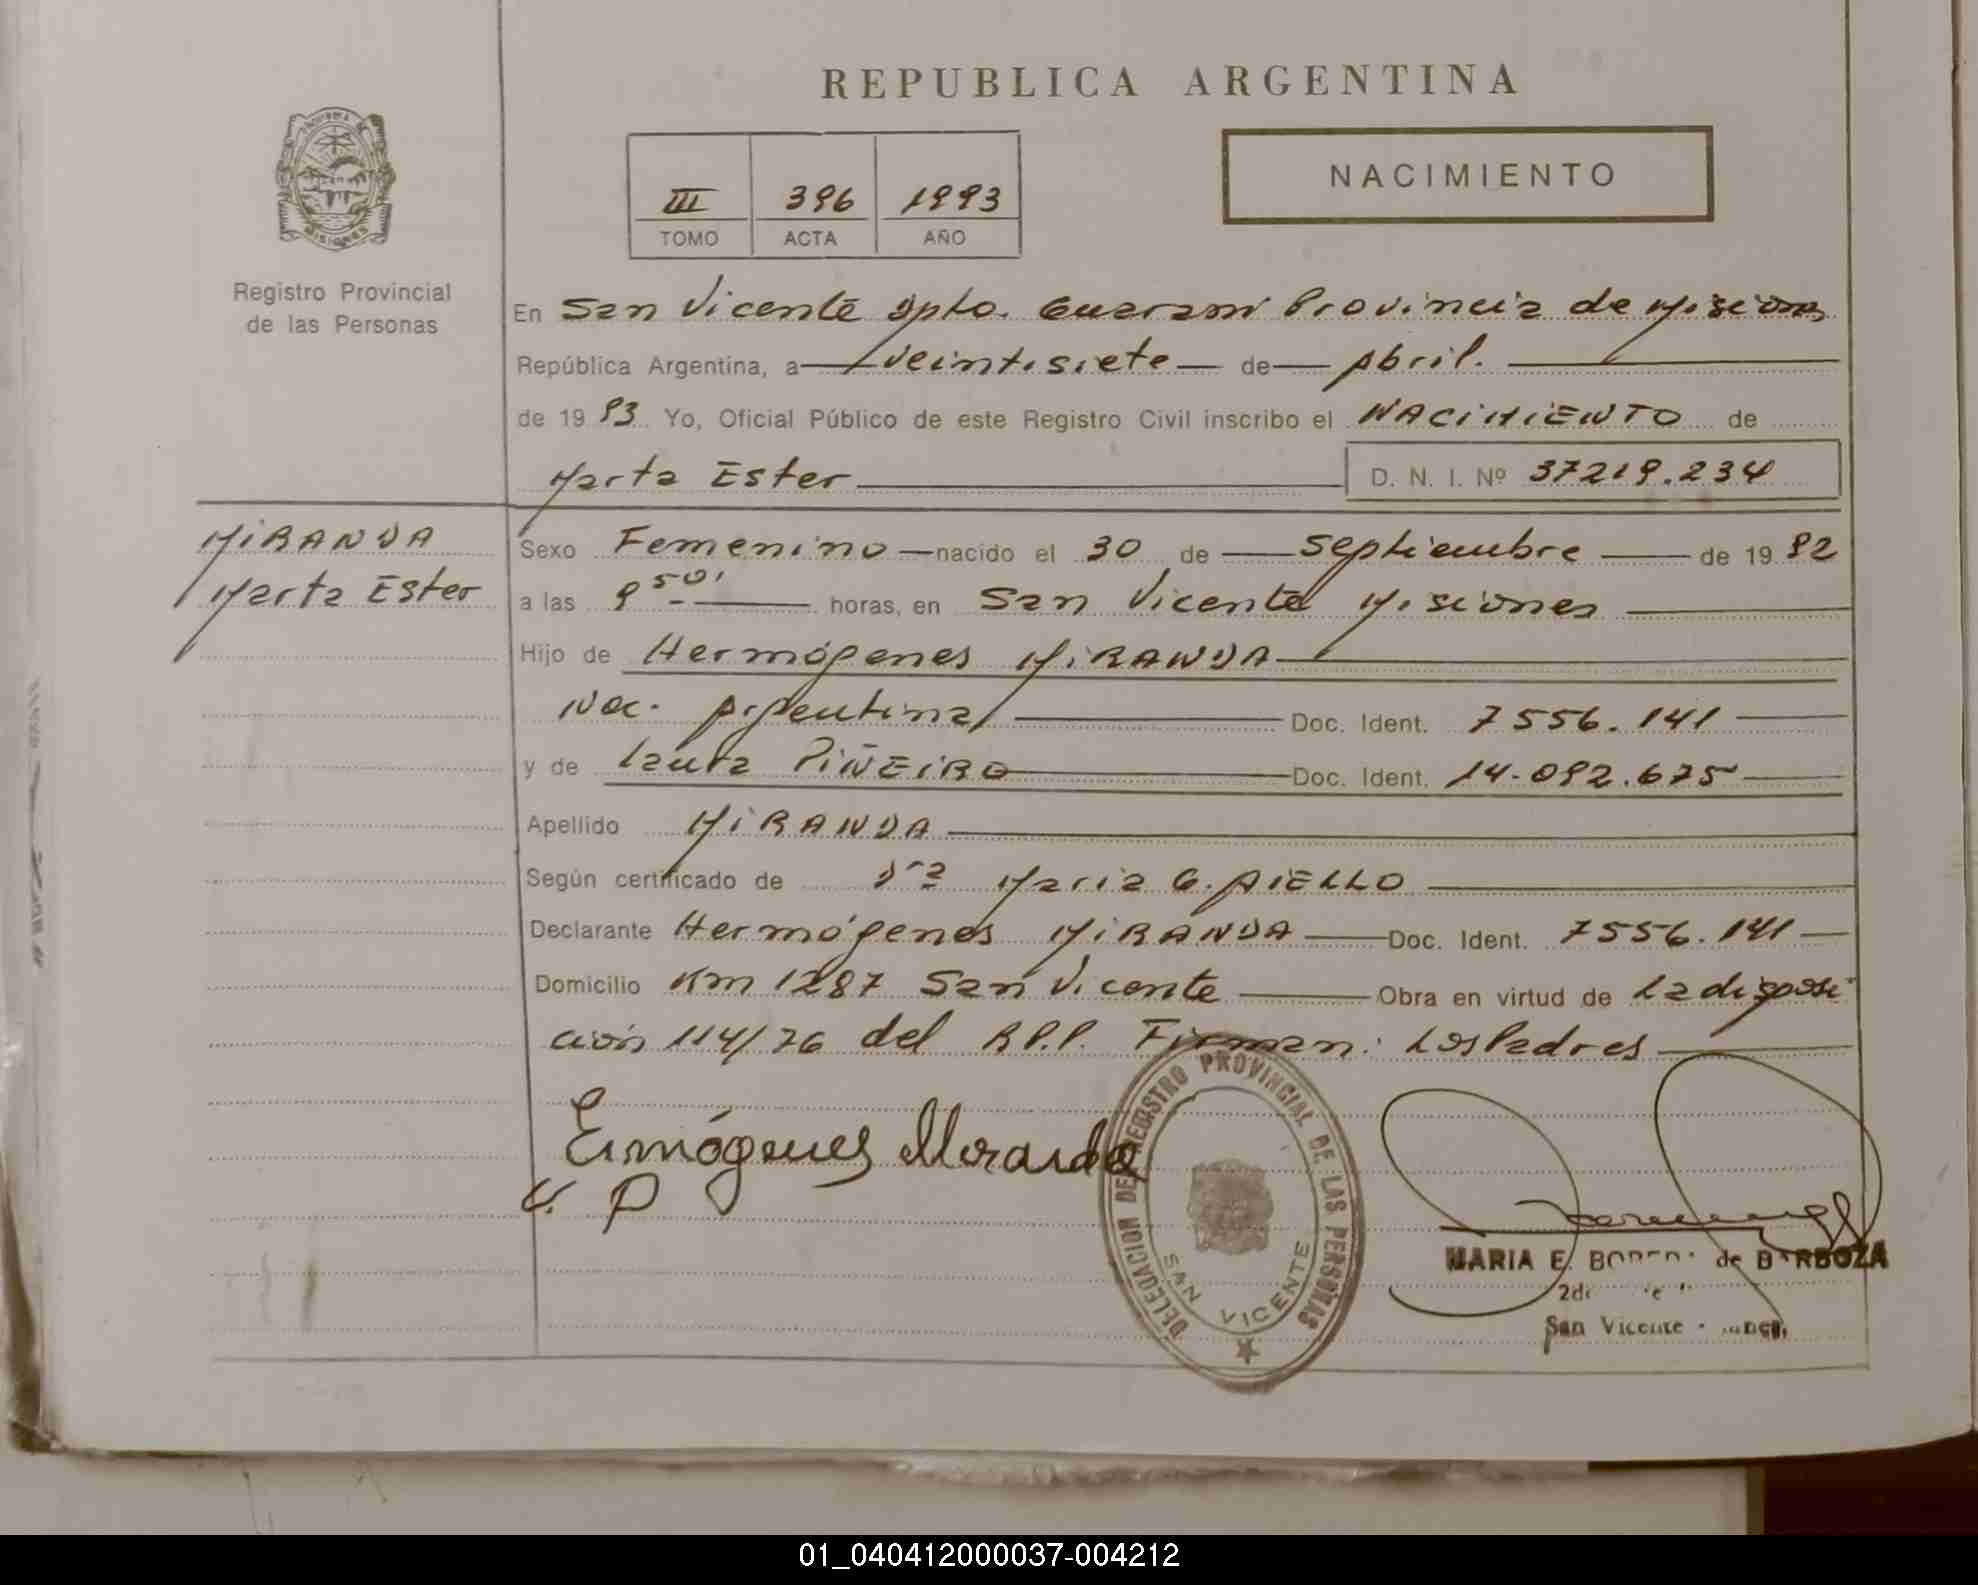 REPUBLICA ARGENTINA
PROVINCIA DE
MISIONES
Registro Provincial
de las Personas
III 396 1993
TOMO ACTA AÑO
NACIMIENTO
En San Vicente Dpto. Guaraní Provincia de Misiones
República Argentina, a veintisiete de Abril.
de 19 93 Yo, Oficial Público de este Registro Civil inscribo el NACIMIENTO de
Marta Ester D. N. I. Nº 37219.234
MIRANDA
Marta Ester
Sexo Femenino nacido el 30 de septiembre de 19 92
a las 9 50' horas, en San Vicente Misiones
Hijo de Hermógenes MIRANDA
Nac. Argentina Doc. Ident. 7556.141
y de Laura PIÑEIRO Doc. Ident. 14.092.675
Apellido MIRANDA
Según certificado de Dra Maria G. AIELLO
Declarante Hermógenes MIRANDA Doc. Ident. 7556.141
Domicilio Km 1287 San Vicente Obra en virtud de La disposi
ción 114/76 del R.P.P. Firman: Los Padres
Ermógenes Miranda
L. P
DELEGACION DEL REGISTRO PROVINCIAL DE LAS PERSONAS
SAN VICENTE
MARIA E. de BARBOZA
San Vicente
01_040412000037-004212